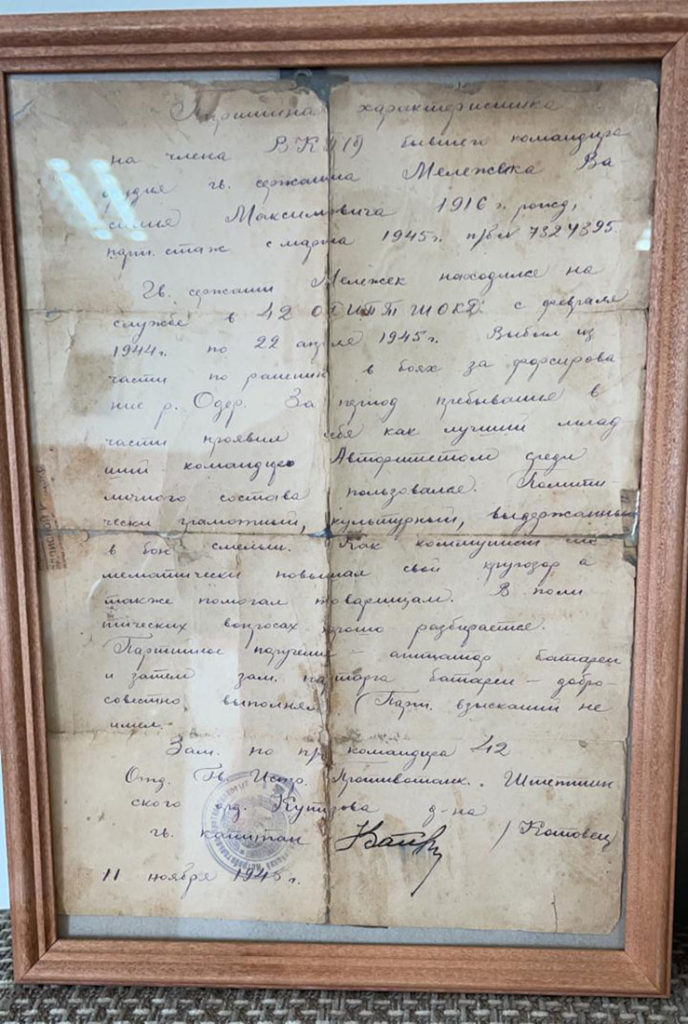 Партийна характеристика
на члена ВКП(б) бывшего командира
орудия гв. сержанта Мележека Ва
силия Максимовича 1916 г. рожд,
парт. стаж с марта 1945 г. п/б №
Гв. сержант Мележек находился на
службе в 42 ОГИПТШОКД с февраля
1944 г. по 22 апреля 1945 г. Выбыл из
части по ранению в боях за форсирова
ние р. Одер. За период пребывания в
части проявил себя как лучший млад
ший командир. Авторитетом среди
личного состава пользовался. Полити
чески грамотный, культурный, выдержанный
в бою смелый. Как коммунист сис
тематически повышал свой кругозор а
также помогал товарищам. В поли
тических вопросах хорошо разбирается.
Партийное поручение – агитатор батареи
и затем зам. парторга батареи – добро-
совестно выполнял. Парт. взысканий не
имел.
Зам. по командира 42
Отд. Гв. Истр. Противотанк. Штеттин
ского орд. Кутузова д-на
гв. капитан /Котовец/
11 ноября 1945 г.